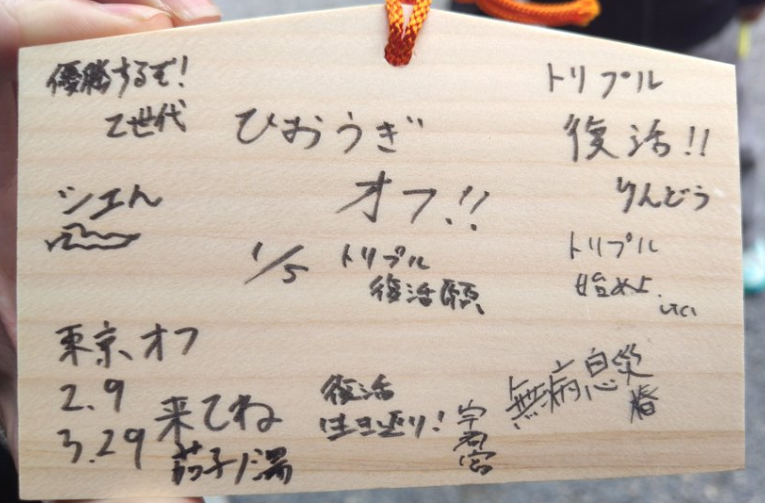 優勝するぞ!
Z世代
シエん
ひおうぎ
オフ!!
1/5 トリプル
復活願
トリプル
復活!!
りんどう
トリプル
始めよ.
東京、オフ
2.9
3.29
来てね
茄子ノ湯
復活
生き返り!
宇都宮
無病息災
椿